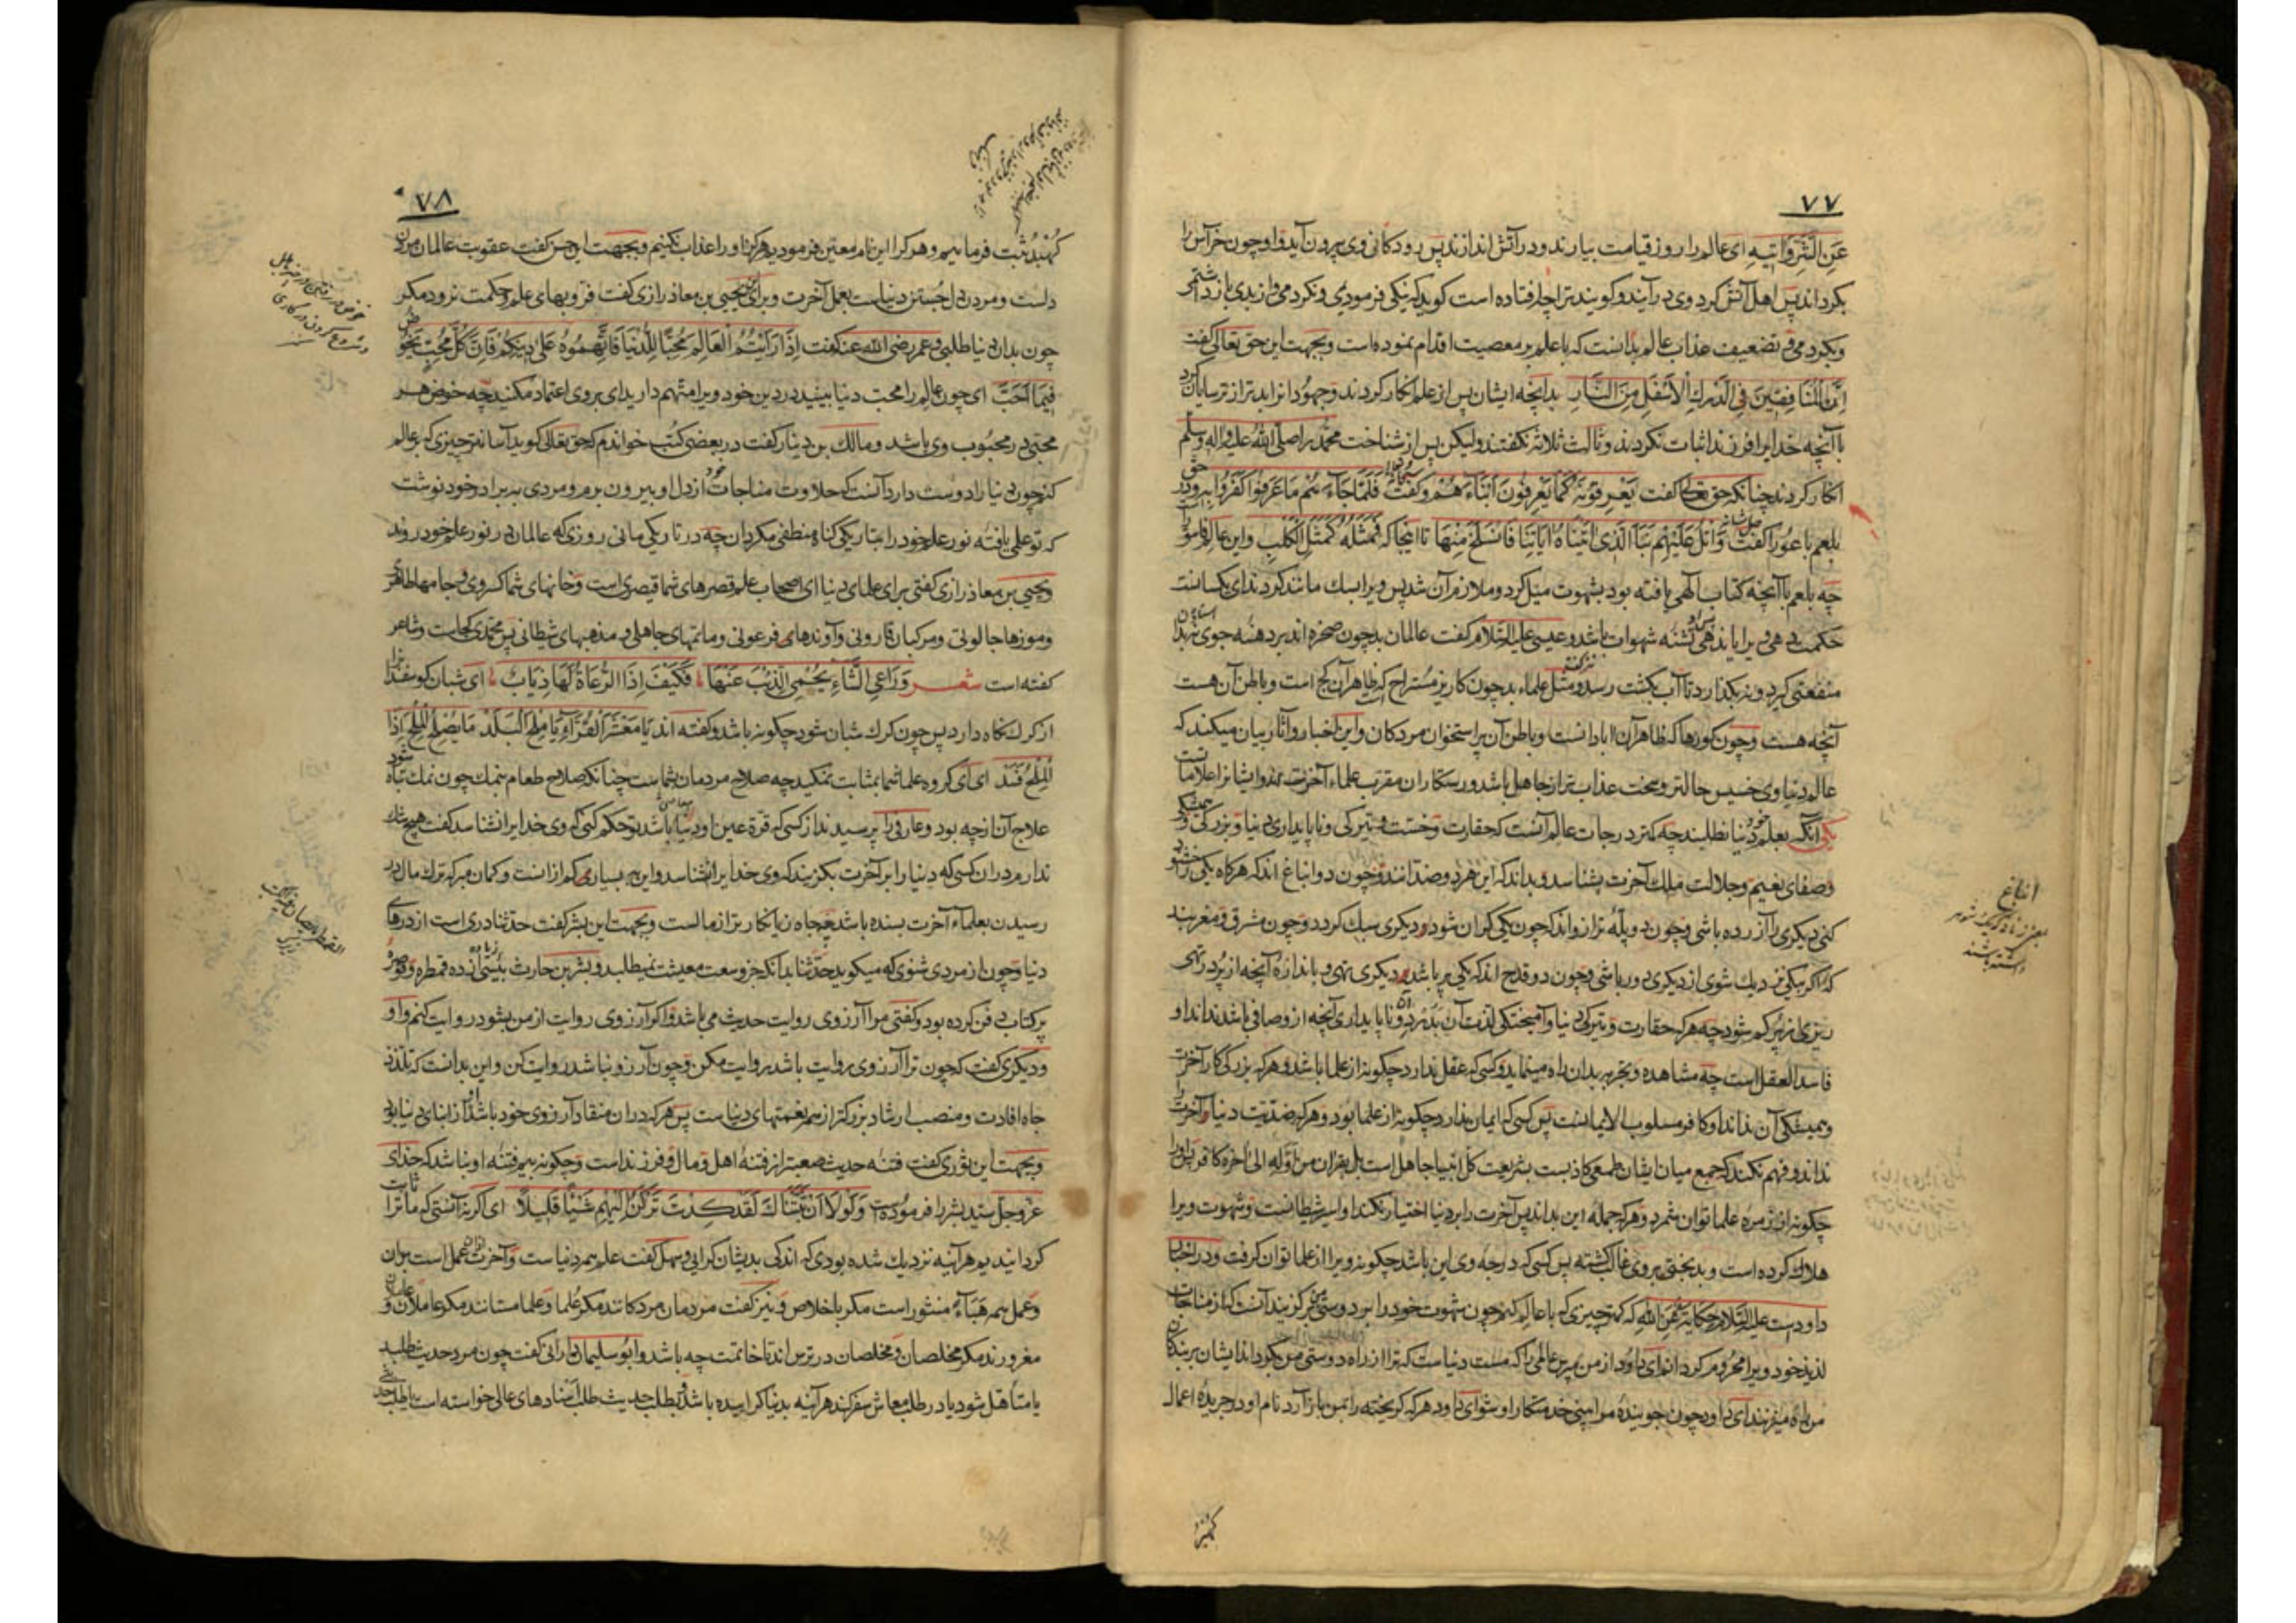 ۷۷
عَنِ الشَّرِّ وَآتِيهِ ای عالم را روز قیامت بیارند و در آتش اندازند پس رودکانی وی بیرون آید و او چون خر آس را
بگرداند پس اهل آتش گرد وی در آیند و گویند ترا چه افتاده است گوید که نیکی فرمودمی و نکردمی و از بدی باز داشتمی
و بکردمی و تضعیف عذاب عالم بدانست که با علم بر معصیت اقدام نموده است و بجهت این حق تعالی گفت
إِنَّ الْمُنَافِقِينَ فِي الدَّرْكِ الْأَسْفَلِ مِنَ النَّارِ بدانچه ایشان پس از علم انکار کردند و جهودانرا بدتر از ترسایان کرد
با آنچه خدایرا فرزند اثبات نکردند و ثالث ثلاثه نگفتند ولیکن پس از شناخت محمد را صلی الله علیه و اله وسلم
انکار کردند چنانکه حق تعالی گفت يَعْرِفُونَهُ كَمَا يَعْرِفُونَ أَبْنَاءَهُمْ و گفت فَلَمَّا جَاءَهُمْ مَا عَرَفُوا كَفَرُوا بِهِ و در حق
بلعم باعورا گفت وَاتْلُ عَلَيْهِمْ نَبَأَ الَّذِي آتَيْنَاهُ آيَاتِنَا فَانْسَلَخَ مِنْهَا تا اینجا که فَمَثَلُهُ كَمَثَلِ الْكَلْبِ و این عالم فاسق را
چه بلعم با آنچه کتاب الهی یافته بود بشهوت میل کرد و ملازم آن شد پس ویرا بسک مانند کردند ای یکسانست
حکمت دهی ویرا یا ندهی تشنه شهوات باشد و عیسی علیه السلام گفت عالمان بد چون صخره اند بر دهنه جوی نه بدان
منفعتی گیرد و نه بگذارد تا آب بکشت رسد و مثل علماء بد چون کاریز مستراح که ظاهر آن گچ است و باطن آن هست
آنچه هست و چون گورها که ظاهر آن ابادانست و باطن آن پر استخوان مردکان و این اخبار و آثار بیان میکند که
عالم دنیاوی خسیس حالتر و سخت عذاب تر از جاهل باشد و رستکاران مقرب علماء آخرت اند و ایشانرا علاماتست
یکی انکه بعلم خود دنیا نطلبند چه کمتر درجات عالم آنست که حقارت و خست و تیرکی و ناپایداری دنیا و بزرکی و همیشکی
و صفای نعیم و جلالت ملک آخرت بشناسد و بداند که این هر دو ضد اند و چون دو انباغ اند که هرکاه یکی را خشنود
کنی دیگری را آزرده باشی و چون دو پلهٔ ترازو اند که چون یکی گران شود دیگری سبک گردد و چون مشرق و مغرب اند
که اگر بیکی نزدیک شوی از دیگری دور باشی و چون دو قدح اند که یکی پر باشد و دیگری تهی و باندازه آنچه از پر در تهی
ریزی از پر کم شود چه هرکه حقارت و تیرکی دنیا و آمیختکی لذت آن بدرد و ناپایداری آنچه از و صافی باشد نداند او
فاسد العقل است چه مشاهده و تجربه بدان راه مینماید و کسی که عقل ندارد چگونه از علما باشد و هرکه بزرکی کار آخرت
و همیشکی آن نداند او کافر مسلوب الایمانست پس کسی که ایمان ندارد چگونه از علما بود و هرکه ضدّیّت دنیا و آخرت را
نداند و فهم نکند که جمع میان ایشان طمعی کاذبست بشریعت کل انبیا جاهل است بل بقران من اوّله الی آخره کافر پس او را
چگونه از زمره علما توان شمرد و هرکه جملهٔ این بداند پس آخرت را بر دنیا اختیار نکند او اسیر شیطانست و شهوت ویرا
هلاک کرده است و بدبختی بر وی غالب گشته پس کسی که درجه وی این باشد چگونه ویرا از علما توان گرفت و در اخبار
داودست علیه السلام حکایة عن الله که کمتر چیزی که با عالم کنم چون شهوت خود را بر دوستی من گزیند آنست که از مناجات
لذیذ خود ویرا محروم گردانم ای داود از من مپرس عالمی را که مست دنیاست که ترا از راه دوستی من بگرداند ایشان بر بندگان
من راه میزنند ای داود چون جویندهٔ مرا بینی خدمتکار او شو ای داود هرکه گریخته را بمن باز آرد نام او در جریدهٔ اعمال
کهبذ
انباغ
۷۸
کهبذ ثبت فرمایم و هر کرا این نام معیّن فرمودیم هرکز او را عذاب نکنیم و بجهت این حسن گفت عقوبت عالمان مردن
دلست و مردن دل جستن دنیاست بعمل آخرت و برای این یحیی بن معاذ رازی گفت فر و بهای علم و حکمت نرود مکر
چون بدان دنیا طلبی و عمر رضی الله عنه گفت إِذَا رَأَيْتُمُ الْعَالِمَ مُحِبًّا لِلدُّنْيَا فَاتَّهِمُوهُ عَلَى دِينِكُمْ فَإِنَّ كُلَّ مُحِبٍّ يَخُوضُ
فِيمَا أَحَبَّ ای چون عالم را محبّ دنیا بینید در دین خود ویرا متهم دارید ای بر وی اعتماد مکنید چه خوض هر
محبّی در محبوب وی باشد و مالک بن دینار گفت در بعضی کتب خواندم که حق تعالی گوید آسانتر چیزی که بر عالم
کنم چون دنیا را دوست دارد آنست که حلاوت مناجات خود از دل او بیرون برم و مردی به برادر خود نوشت
که تو علمی یافتهٔ نور علم خود را بتاریکی گناه منطفی مگردان چه در تاریکی مانی روزی که عالمان در نور علم خود روند
و یحیی بن معاذ رازی گفتی برای علمای دنیا ای اصحاب علم قصرهای شما قیصری است و خانهای شما کسروی و جامها طاهری
و موزها جالوتی و مرکبان قارونی و آوندهای فرعونی و ماتمهای جاهلی و مذهبهای شیطانی پس محمدی کجاست و شاعر
گفته است شعر وَرَاعِي الشَّاءِ يَحْمِي الذِّئْبَ عَنْهَا فَكَيْفَ إِذَا الرُّعَاةُ لَهَا ذِيَابُ ای شبان گوسفند را
از گرک نگاه دارد پس چون گرک شبان شود چگونه باشد و گفته اند يَا مَعْشَرَ الْقُرَّاءِ يَا مِلْحَ الْبَلَدْ مَا يُصْلِحُ الْمِلْحَ إِذَا
الْمِلْحُ فَسَدْ ای ای گروه علما شما بمثابت نمکید چه صلاح مردمان بشماست چنانکه صلاح طعام بنمک چون نمک تباه شود
علاج آن از چه بود و عارفی را پرسیدند از کسی که قرة عین او در معاصی باشد تو حکم کنی که وی خدایرا نشناسد گفت هیچ شک
ندارم در ان کسی که دنیا را بر آخرت بگزیند که وی خدایرا نشناسد و این به بسیاری کم از انست و گمان مبر که ترک مال در
رسیدن بعلماء آخرت بسنده باشد چه جاه زیانکارتر از مالست و بجهت این بشر گفت حدثنا دری است از درهای
دنیا و چون از مردی شنوی که میگوید حدّثنا بدانکه جز وسعت معیشت نمیطلبد و بشر بن حارث بیشتر از ده قمطره و قوصره
پر کتاب دفن کرده بود و گفتی مرا آرزوی روایت حدیث می باشد و اگر آرزوی روایت از من بشود روایت کنم و او
و دیگری گفت که چون ترا آرزوی روایت باشد روایت مکن و چون آرزو نباشد روایت کن و این بدانست که تلذذ
جاه افادت و منصب ارشاد بزرکتر از همه نعمتهای دنیاست پس هرکه در ان منقاد آرزوی خود باشد او از ابنای دنیا بود
و بجهت این ثوری گفت فتنه حدیث صعبتر از فتنهٔ اهل و مال و فرزند است و چگونه بیم فتنه او نباشد که خدای
عزوجل سید بشر را فرموده است وَلَوْلَا أَنْ ثَبَّتْنَاكَ لَقَدْ كِدْتَ تَرْكَنُ إِلَيْهِمْ شَيْئًا قَلِيلًا ای اگر نه آنستی که ما ترا ثابت
گردانیدیم هرآینه نزدیک شده بودی که اندکی بدیشان گرایی و سهل گفت علم همه دنیاست و آخرت از ان عمل است بران
و عمل همه هَبَاءً منثور است مگر باخلاص و نیز گفت مردمان مردکانند مگر علما و علما مستانند مگر عاملان و
مغرورند مگر مخلصان و مخلصان در ترس اند تا خاتمت چه باشد و ابوسلیمان دارانی گفت چون مرد حدیث طلبد
یا متأهل شود یا در طلب معاش سفر کند هرآینه بدنیا گراییده باشد و بطلب حدیث طلب اسنادهای عالی خواسته است یا طلب حدیثی